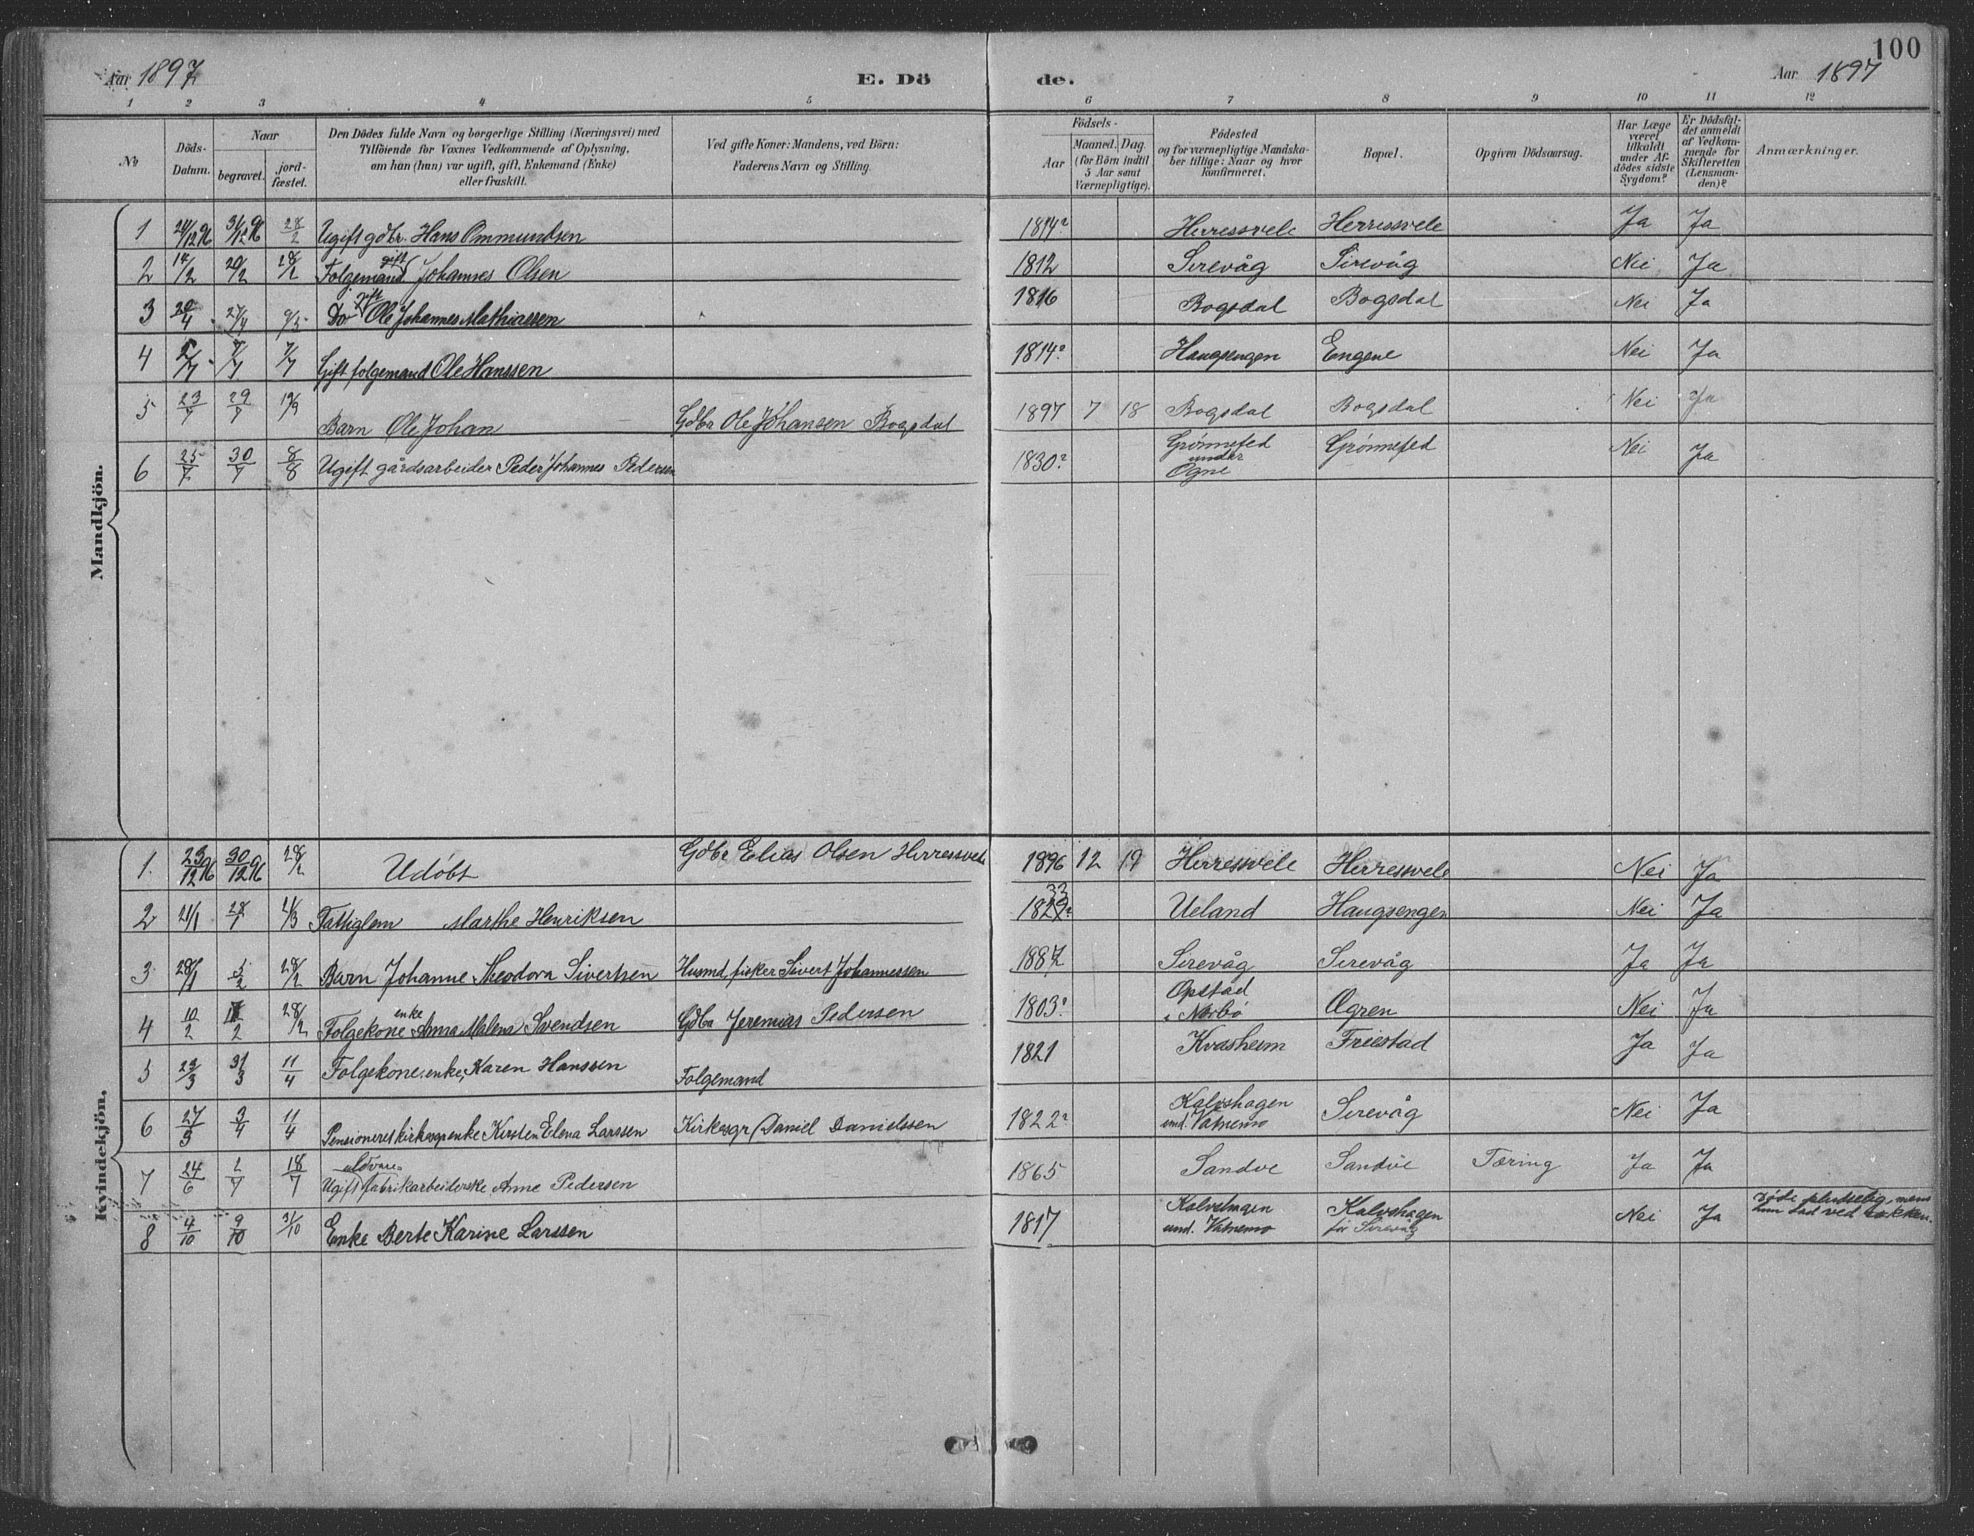 100
Aar 1897 E. Dö de. Aar 1897
1 2 3 4 5 6 7 8 9 10 11 12
No
Döds-Datum.
Naar
begravet.
jord-fæstet.
Den Dödes fulde Navn og borgerlige Stilling (Næringsvei) med
Tilföiende for Voxnes Vedkommende af Oplysning,
om han (hun) var ugift, gift, Enkemand (Enke)
eller fraskilt.
Ved gifte Koner: Mandens, ved Börn:
Faderens Navn og Stilling.
Födsels-
Aar
Maaned. Dag.
(for Börn indtil
5 Aar samt
Værnepligtige).
Födested
og for værnepligtige Mandska-
ber tillige: Naar og hvor
konfirmeret.
Bopæl.
Opgiven Dödsaarsag.
Har Læge
været
tilkaldt
under Af-
dödes sidste
Sygdom?
Er Dödsfal-
det anmeldt
af Vedkom-
mende for
Skifteretten
(Lensman-
den)?
Anmærkninger.
Mandkjön.
1 24/12 96 31/12 96 28/2 Ugift gdbr. Hans Ommundsen 1814? Herressvele Herressvele Ja Ja
2 14/2 20/2 28/2 Folgemand gift Johannes Olsen 1812 Sirevåg Sirevåg Nei Ja
3 20/4 27/4 9/5 Do gift Ole Johannes Mathiassen 1816 Bogsdal Bogsdal Nei Ja
4 7/7 7/7 Gift folgemand Ole Hanssen 1814? Haugsengen Engene Nei Ja
5 23/7 29/7 19/9 Barn Ole Johan Gdbr Ole Johansen Bogsdal 1897 7 18 Bogsdal Bogsdal Nei Ja
6 25/7 30/7 8/8 Ugift gårdsarbeider Peder Johannes Pedersen 1830? Grønnefed under Ogne Grønnefed Nei Ja
Kvindekjön.
1. 23/12 96 30/12 96 28/2 Udöbt Gdbr Elias Olsen Herressvele 1896 12 19 Herressvele Herressvele Nei Ja
2 21/1 28/1 21/3 Fattiglem Marthe Henriksen 33 1829? Ueland Haugsengen Nei Ja
3 28/1 5/2 28/2 Barn Johanne Theodora Sivertsen Husmd, fisker Sivert Johannessen 1887 Sirevåg Sirevåg Ja Ja
4 10/2 28/2 Folgekone enke Anna Malena Svendsen Gdbr Jeremias Pedersen 1803? Opstad i Nærbø Ogren Nei Ja
5 23/3 31/3 11/4 Folgekone, enke, Karen Hanssen Folgemand 1821 Kvasheim Friestad Ja Ja
6 27/3 3/4 11/4 Pensioneret kirkesgrenke Kirsten Elena Larssen Kirkesgr. Daniel Danielssen 1822? Kalvshagen und. Vatnemo Sirevåg Nei Ja
7 24/6 2/7 18/7 Ugift uldvarefabrikarbeiderske Anne Pedersen 1865 Sandve Sandve Tæring Ja Ja
8 4/10 9/10 31/10 Enke Berte Karine Larssen 1817 Kalvehagen und. Vatnemo Kalvehagen før Sirevåg Nei Ja Døde pludselig, mens hun sad ved rokken.